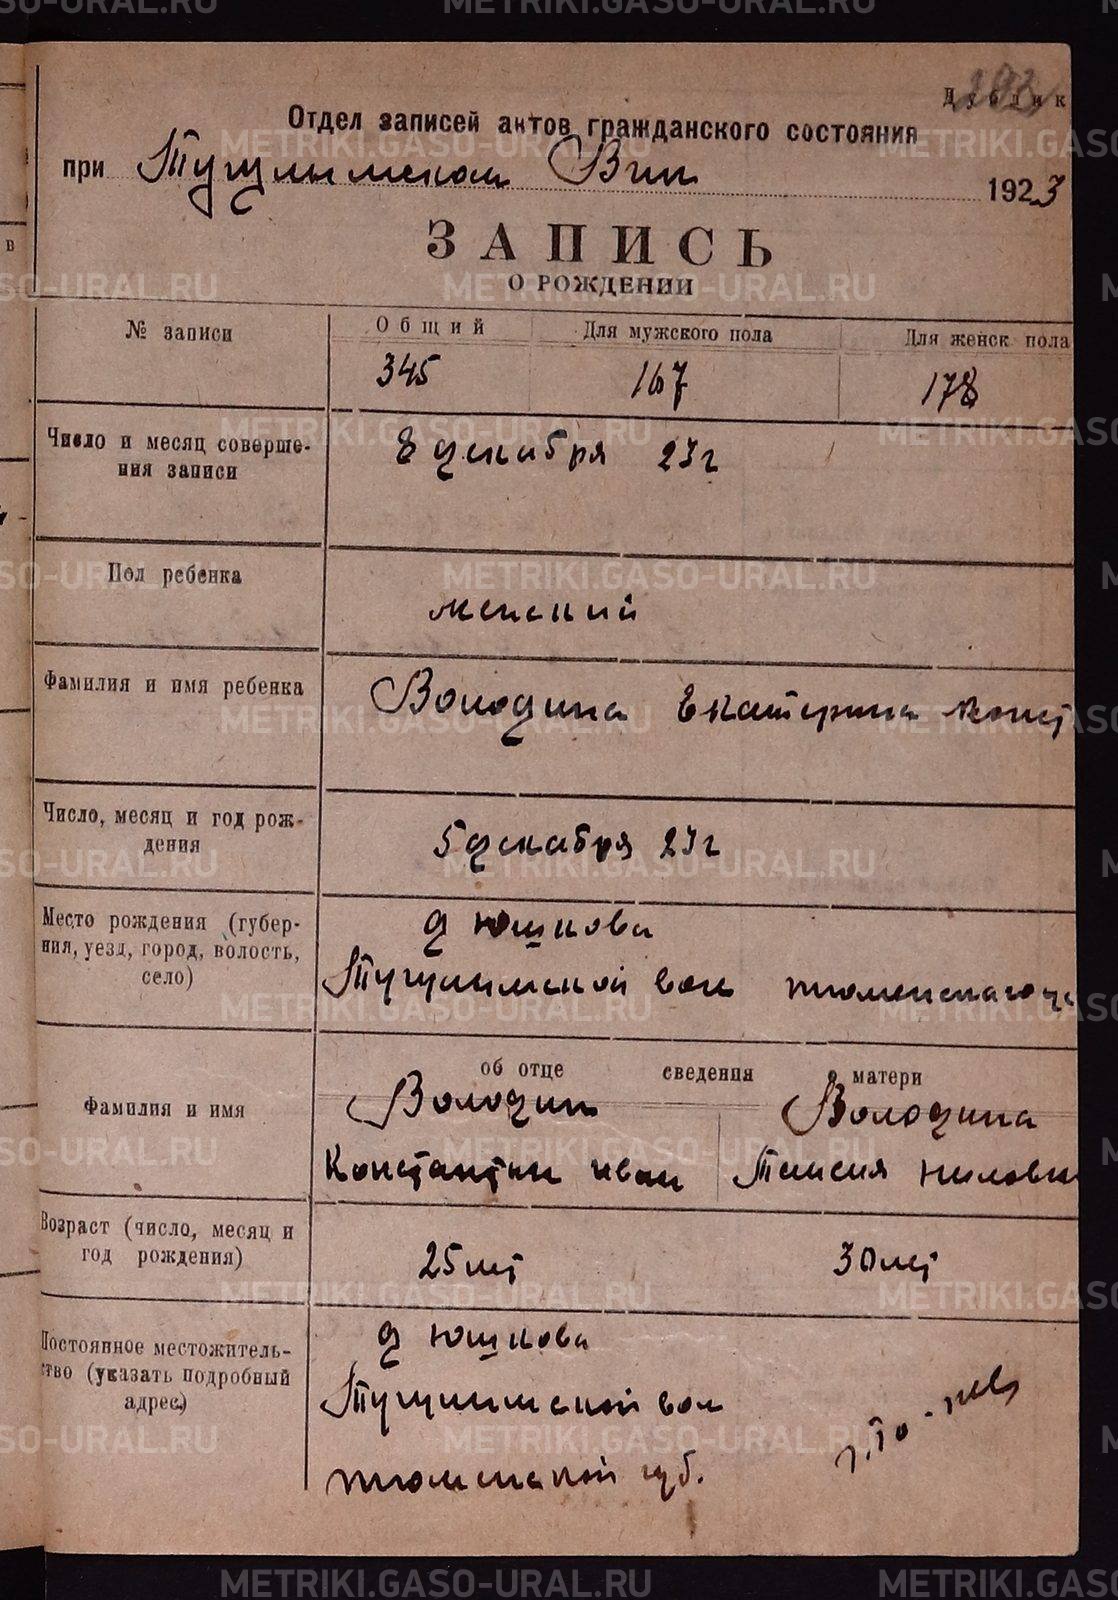 Дублик
Отдел записей актов гражданского состояния
при Тугулымском Вик 1923
ЗАПИСЬ
О РОЖДЕНИИ
№ записи Общий Для мужского пола Для женск пола
345 167 178
Число и месяц соверше-
ния записи
8 декабря 23 г
Пол ребенка
женский
Фамилия и имя ребенка
Володина Екатерина Конст
Число, месяц и год рож-
дения
5 декабря 23 г
Место рождения (губер-
ния, уезд, город, волость,
село)
д Юшкова
Тугулымской вол тюменскаго у
об отце сведения о матери
Фамилия и имя
Володин Володина
Константин Иван Таисия Ниловн
Возраст (число, месяц и
год рождения)
25 лет 30 лет
Постоянное местожитель-
ство (указать подробный
адрес)
д Юшкова
Тугулымской вол
тюменской губ.
METRIKI.GASO-URAL.RU